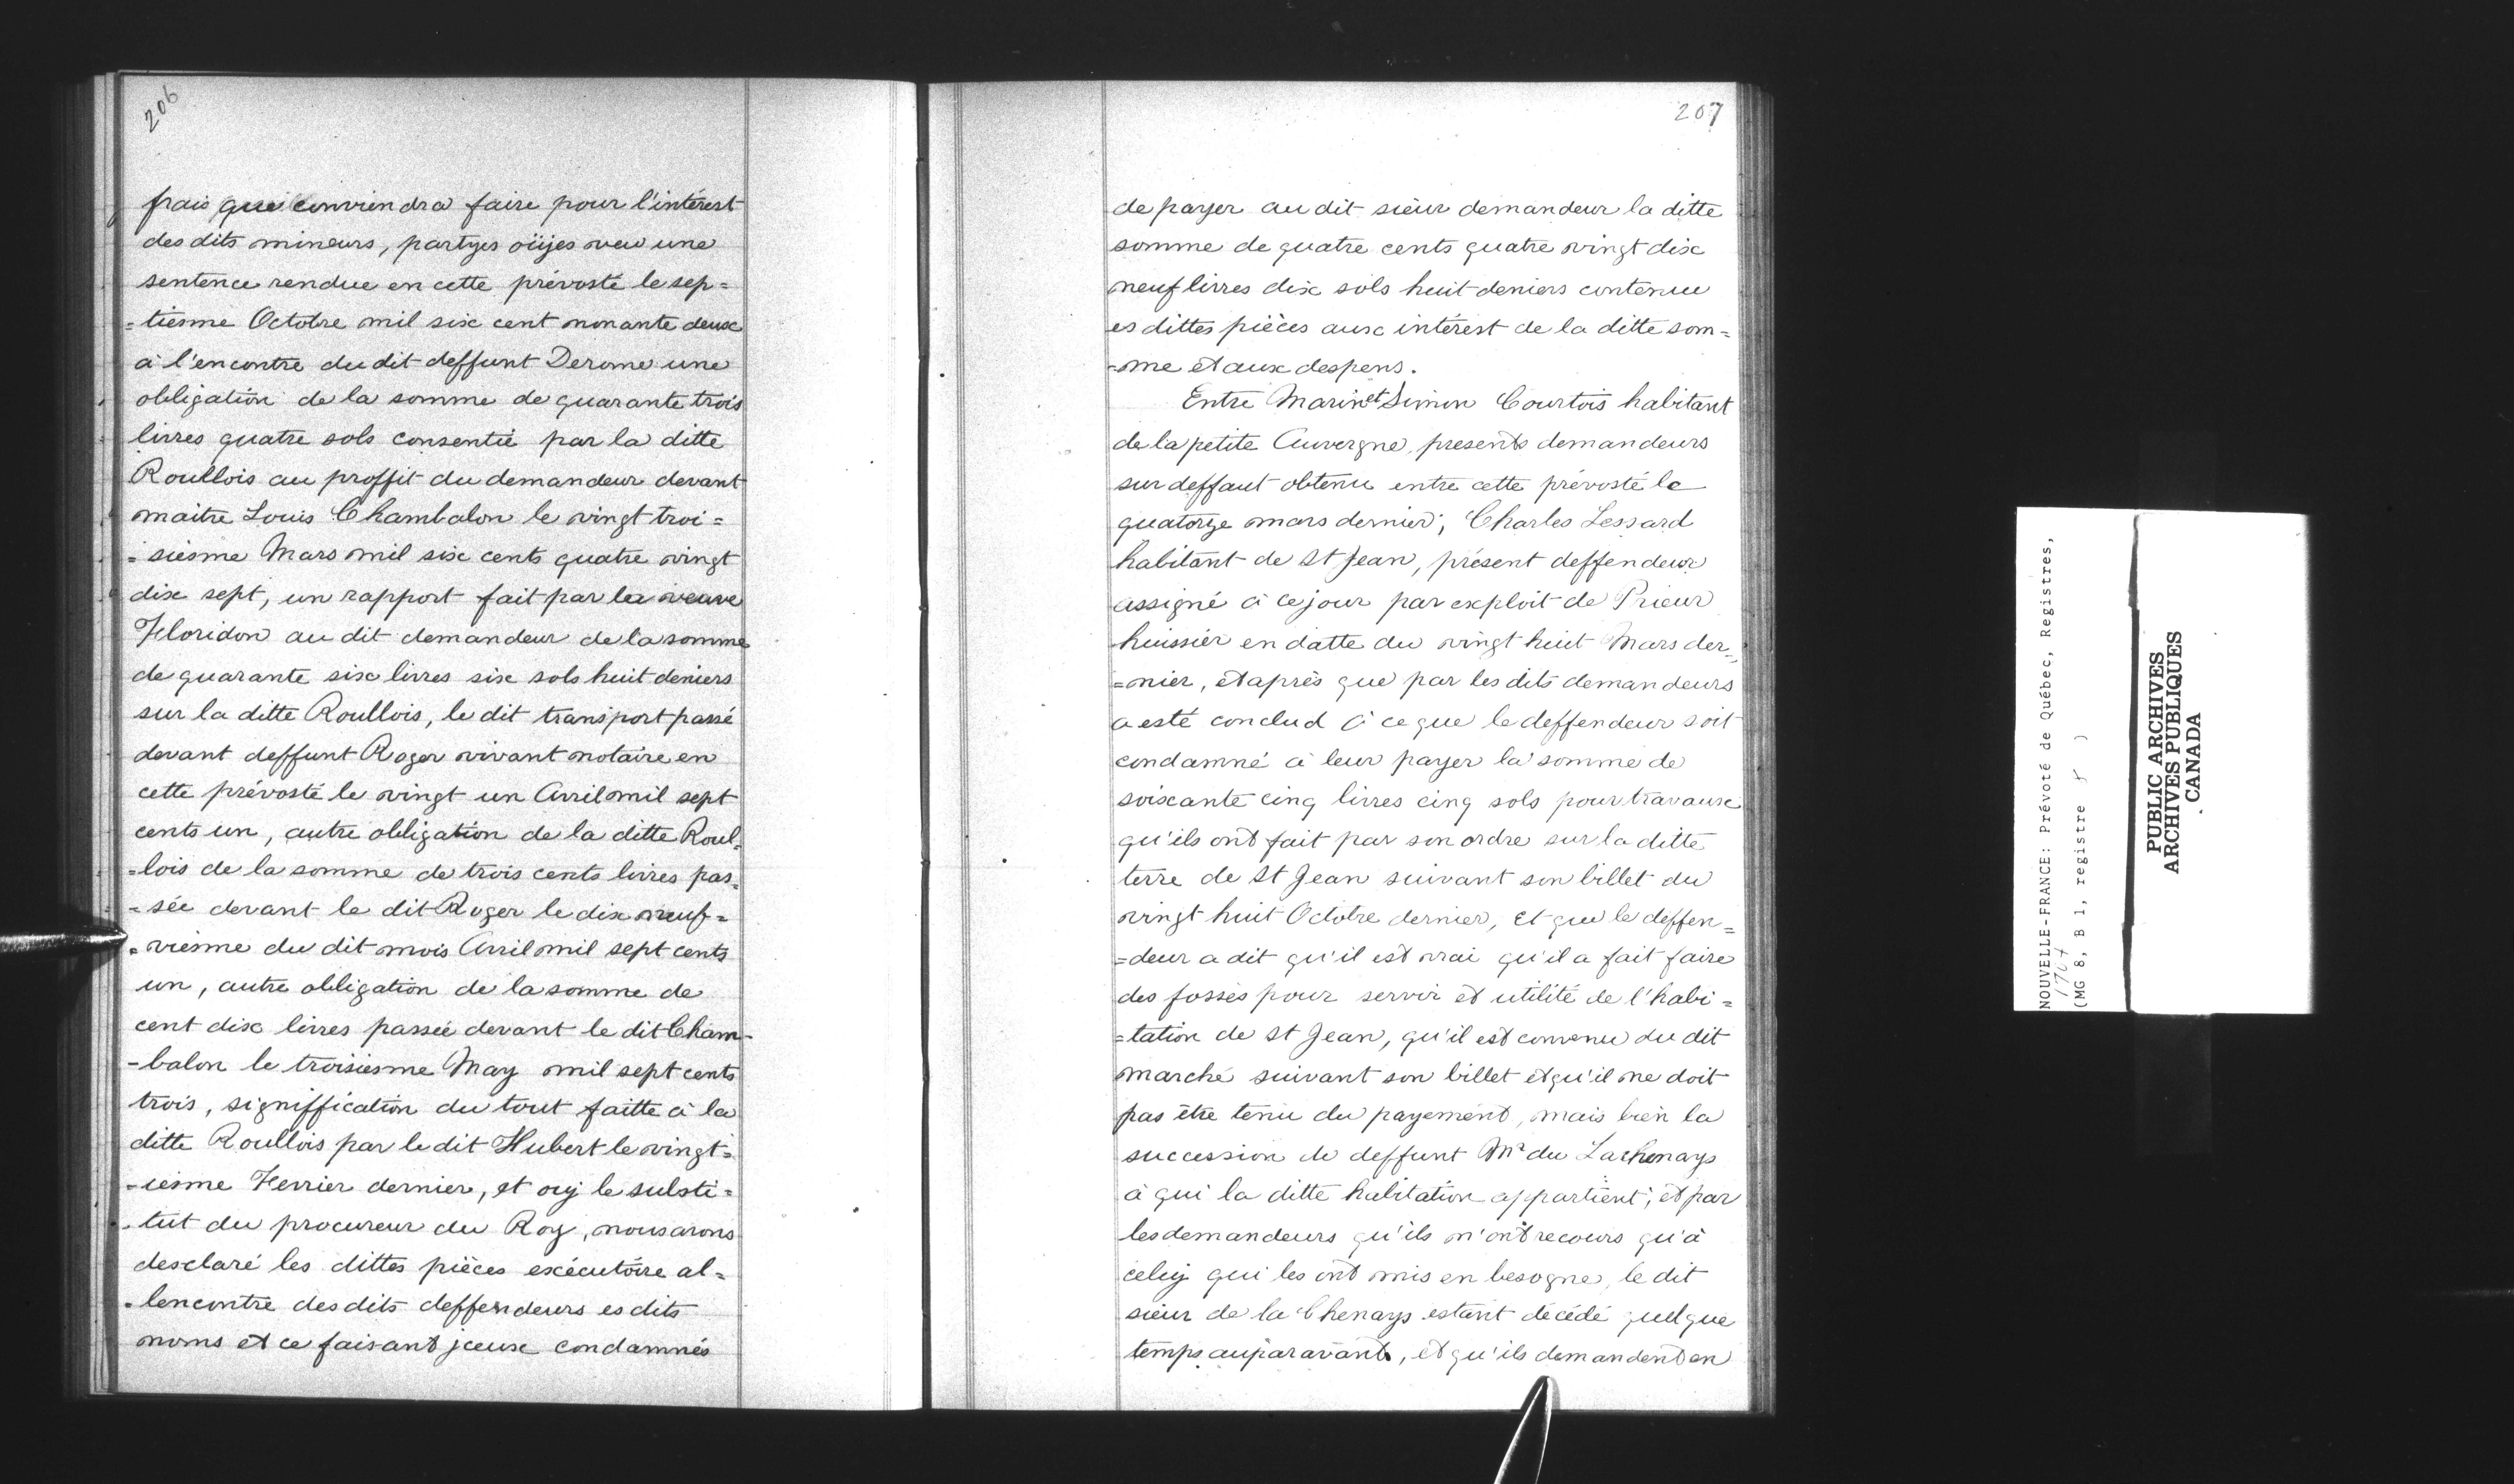 206
frais que conviendra faire pour l'intérest
des dits mineurs, partyes oüyes veu une
sentence rendue en cette prévosté le sep=
=tiesme Octobre mil six cent nonante deux
à l'encontre du dit deffunt Derome une
obligation de la somme de quarante trois
livres quatre sols consentie par la ditte
Roullois au proffit du demandeur devant
maitre Louis Chambalon le vingt troi=
=siesme Mars mil six cents quatre vingt
dix sept, un rapport fait par la veuve
Floridon au dit demandeur de la somme
de quarante six livres six sols huit deniers
sur la ditte Roullois, le dit transport passé
devant deffunt Roger vivant notaire en
cette prévosté le vingt un Avril mil sept
cents un, autre obligation de la ditte Roul=
=lois de la somme de trois cents livres pas=
=sée devant le dit Roger le dix neuf=
=viesme du dit mois Avril mil sept cents
un, autre obligation de la somme de
cent dix livres passée devant le dit Cham-
-balon le troisiesme May mil sept cents
trois, signiffication du tout faitte à la
ditte Roullois par le dit Hubert le vingt=
-iesme Fevrier dernier, et ouy le substi=
-tut du procureur du Roy, nous avons
desclaré les dittes pièces exécutoire al=
-lencontre des dits deffendeurs es dits
noms et ce faisant jceux condamnés
207
de payer au dit sieur demandeur la ditte
somme de quatre cents quatre vingt dix
neuf livres dix sols huit deniers contenue
es dittes pièces aux intérest de la ditte som=
-me et aux despens.
Entre Marin et Simon Courtois habitant
de la petite Auvergne, presents demandeurs
sur deffaut obtenu entre cette prévosté le
quatorze mars dernier; Charles Lessard
habitant de St Jean, présent deffendeur
assigné à ce jour par exploit de Prieur
huissier en datte du vingt huit Mars der=
=nier, et après que par les dits demandeurs
a esté conclud à ce que le deffendeur soit
condamné à leur payer la somme de
soixante cinq livres cinq sols pour travaux
qu'ils ont fait par son ordre sur la ditte
terre de St Jean suivant son billet du
vingt huit Octobre dernier, et que le deffen=
=deur a dit qu'il est vrai qu'il a fait faire
des fossés pour servir et utilité de l'habi=
=tation de St Jean, qu'il est convenu du dit
marché suivant son billet et qu'il ne doit
pas être tenu du payement, mais bien la
succession de deffunt Mr du Lachenays
à qui la ditte habitation appartient; et par
les demandeurs qu'ils n'ont recours qu'à
celuy qui les ont mis en besogne, le dit
sieur de la Chenays estant décédé quelque
temps auparavant, et qu'ils demandent en
NOUVELLE-FRANCE: Prévoté de Québec, Registres,
1707
(MG 8, B 1, registre )
PUBLIC ARCHIVES
ARCHIVES PUBLIQUES
CANADA